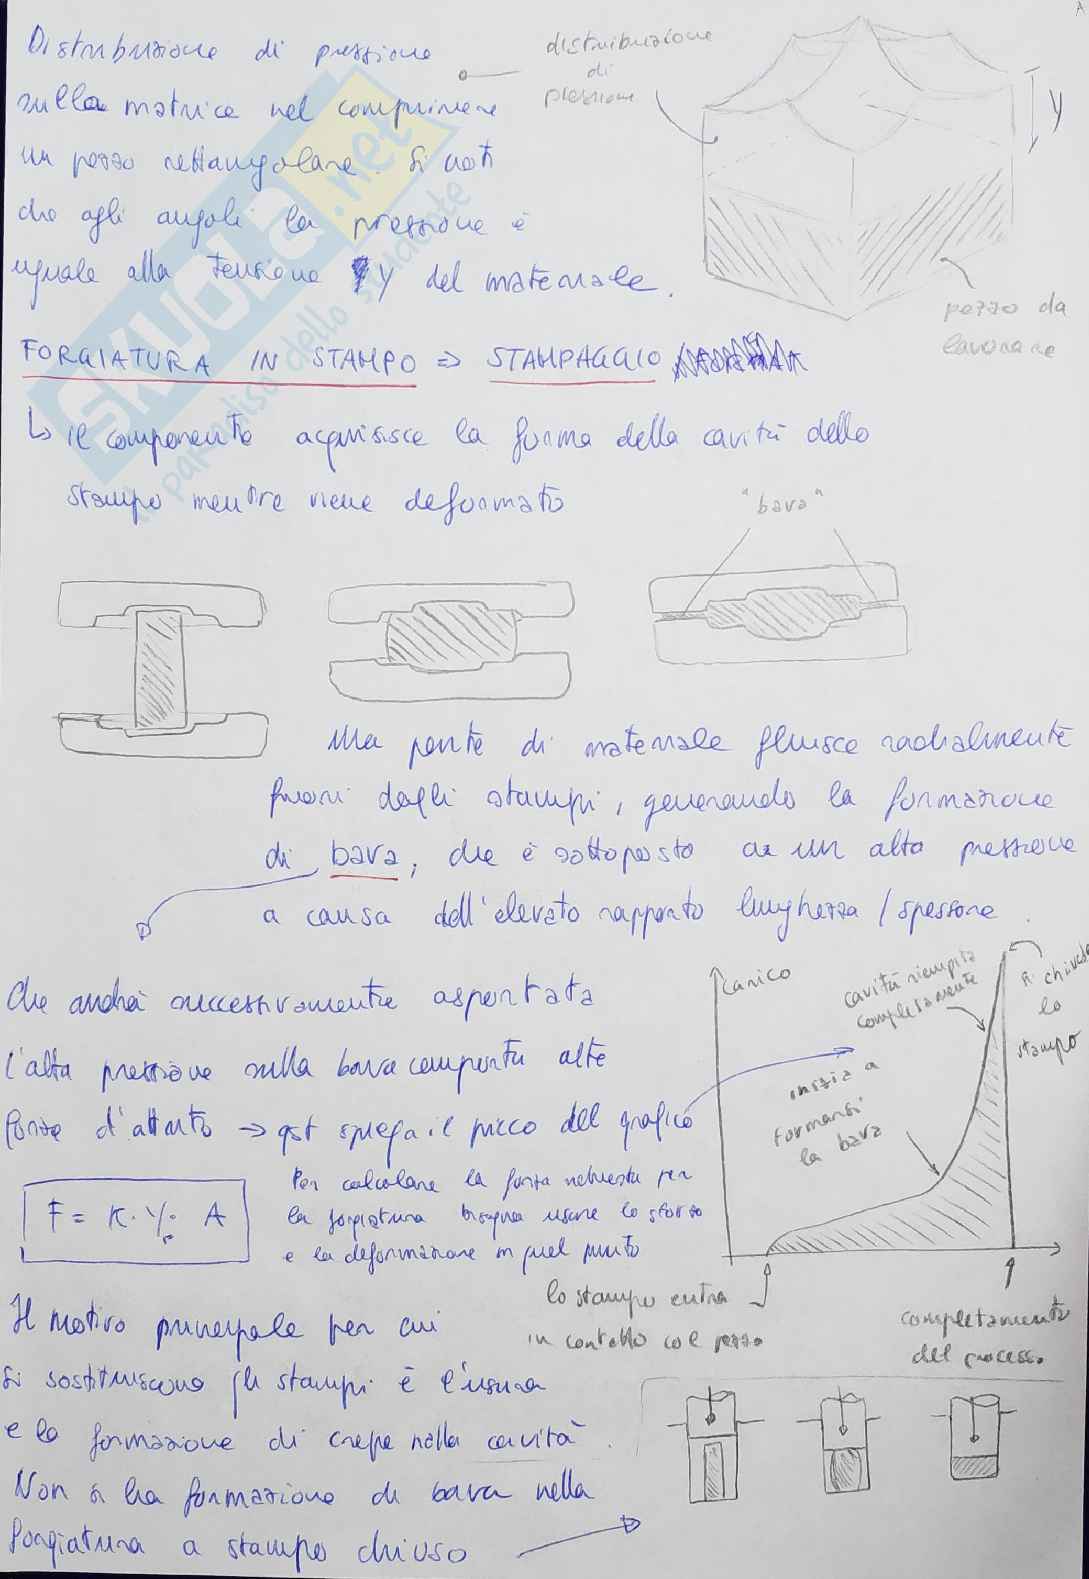 Distribuzione di pressione
sulla matrice nel comprimere
un pezzo rettangolare. Si noti
che agli angoli la pressione è
uguale alla tensione Y del materiale.
distribuzione
di
pressione
Y
pezzo da
lavorare
SKUOLA.net
il paradiso dello studente
FORGIATURA IN STAMPO => STAMPAGGIO
↳ il componente acquisisce la forma della cavità dello
stampo mentre viene deformato
"bava"
Una parte di materiale fluisce radialmente
fuori dagli stampi, generando la formazione
di bava, che è sottoposto a un alta pressione
a causa dell'elevato rapporto lunghezza / spessore.
Che andrà successivamente asportata
l'alta pressione sulla bava comporta alte
forze d'attrito → qst spiega il picco del grafico
Carico
cavità riempita
completamente
si chiude
lo
stampo
inizia a
formarsi
la bava
F = K · Yf · A
Per calcolare la forza richiesta per
la forgiatura bisogna usare lo sforzo
e la deformazione in quel punto
lo stampo entra
in contatto col pezzo
completamento
del processo
Il motivo principale per cui
si sostituiscono gli stampi è l'usura
e la formazione di crepe nella cavità.
Non si ha formazione di bava nella
forgiatura a stampo chiuso